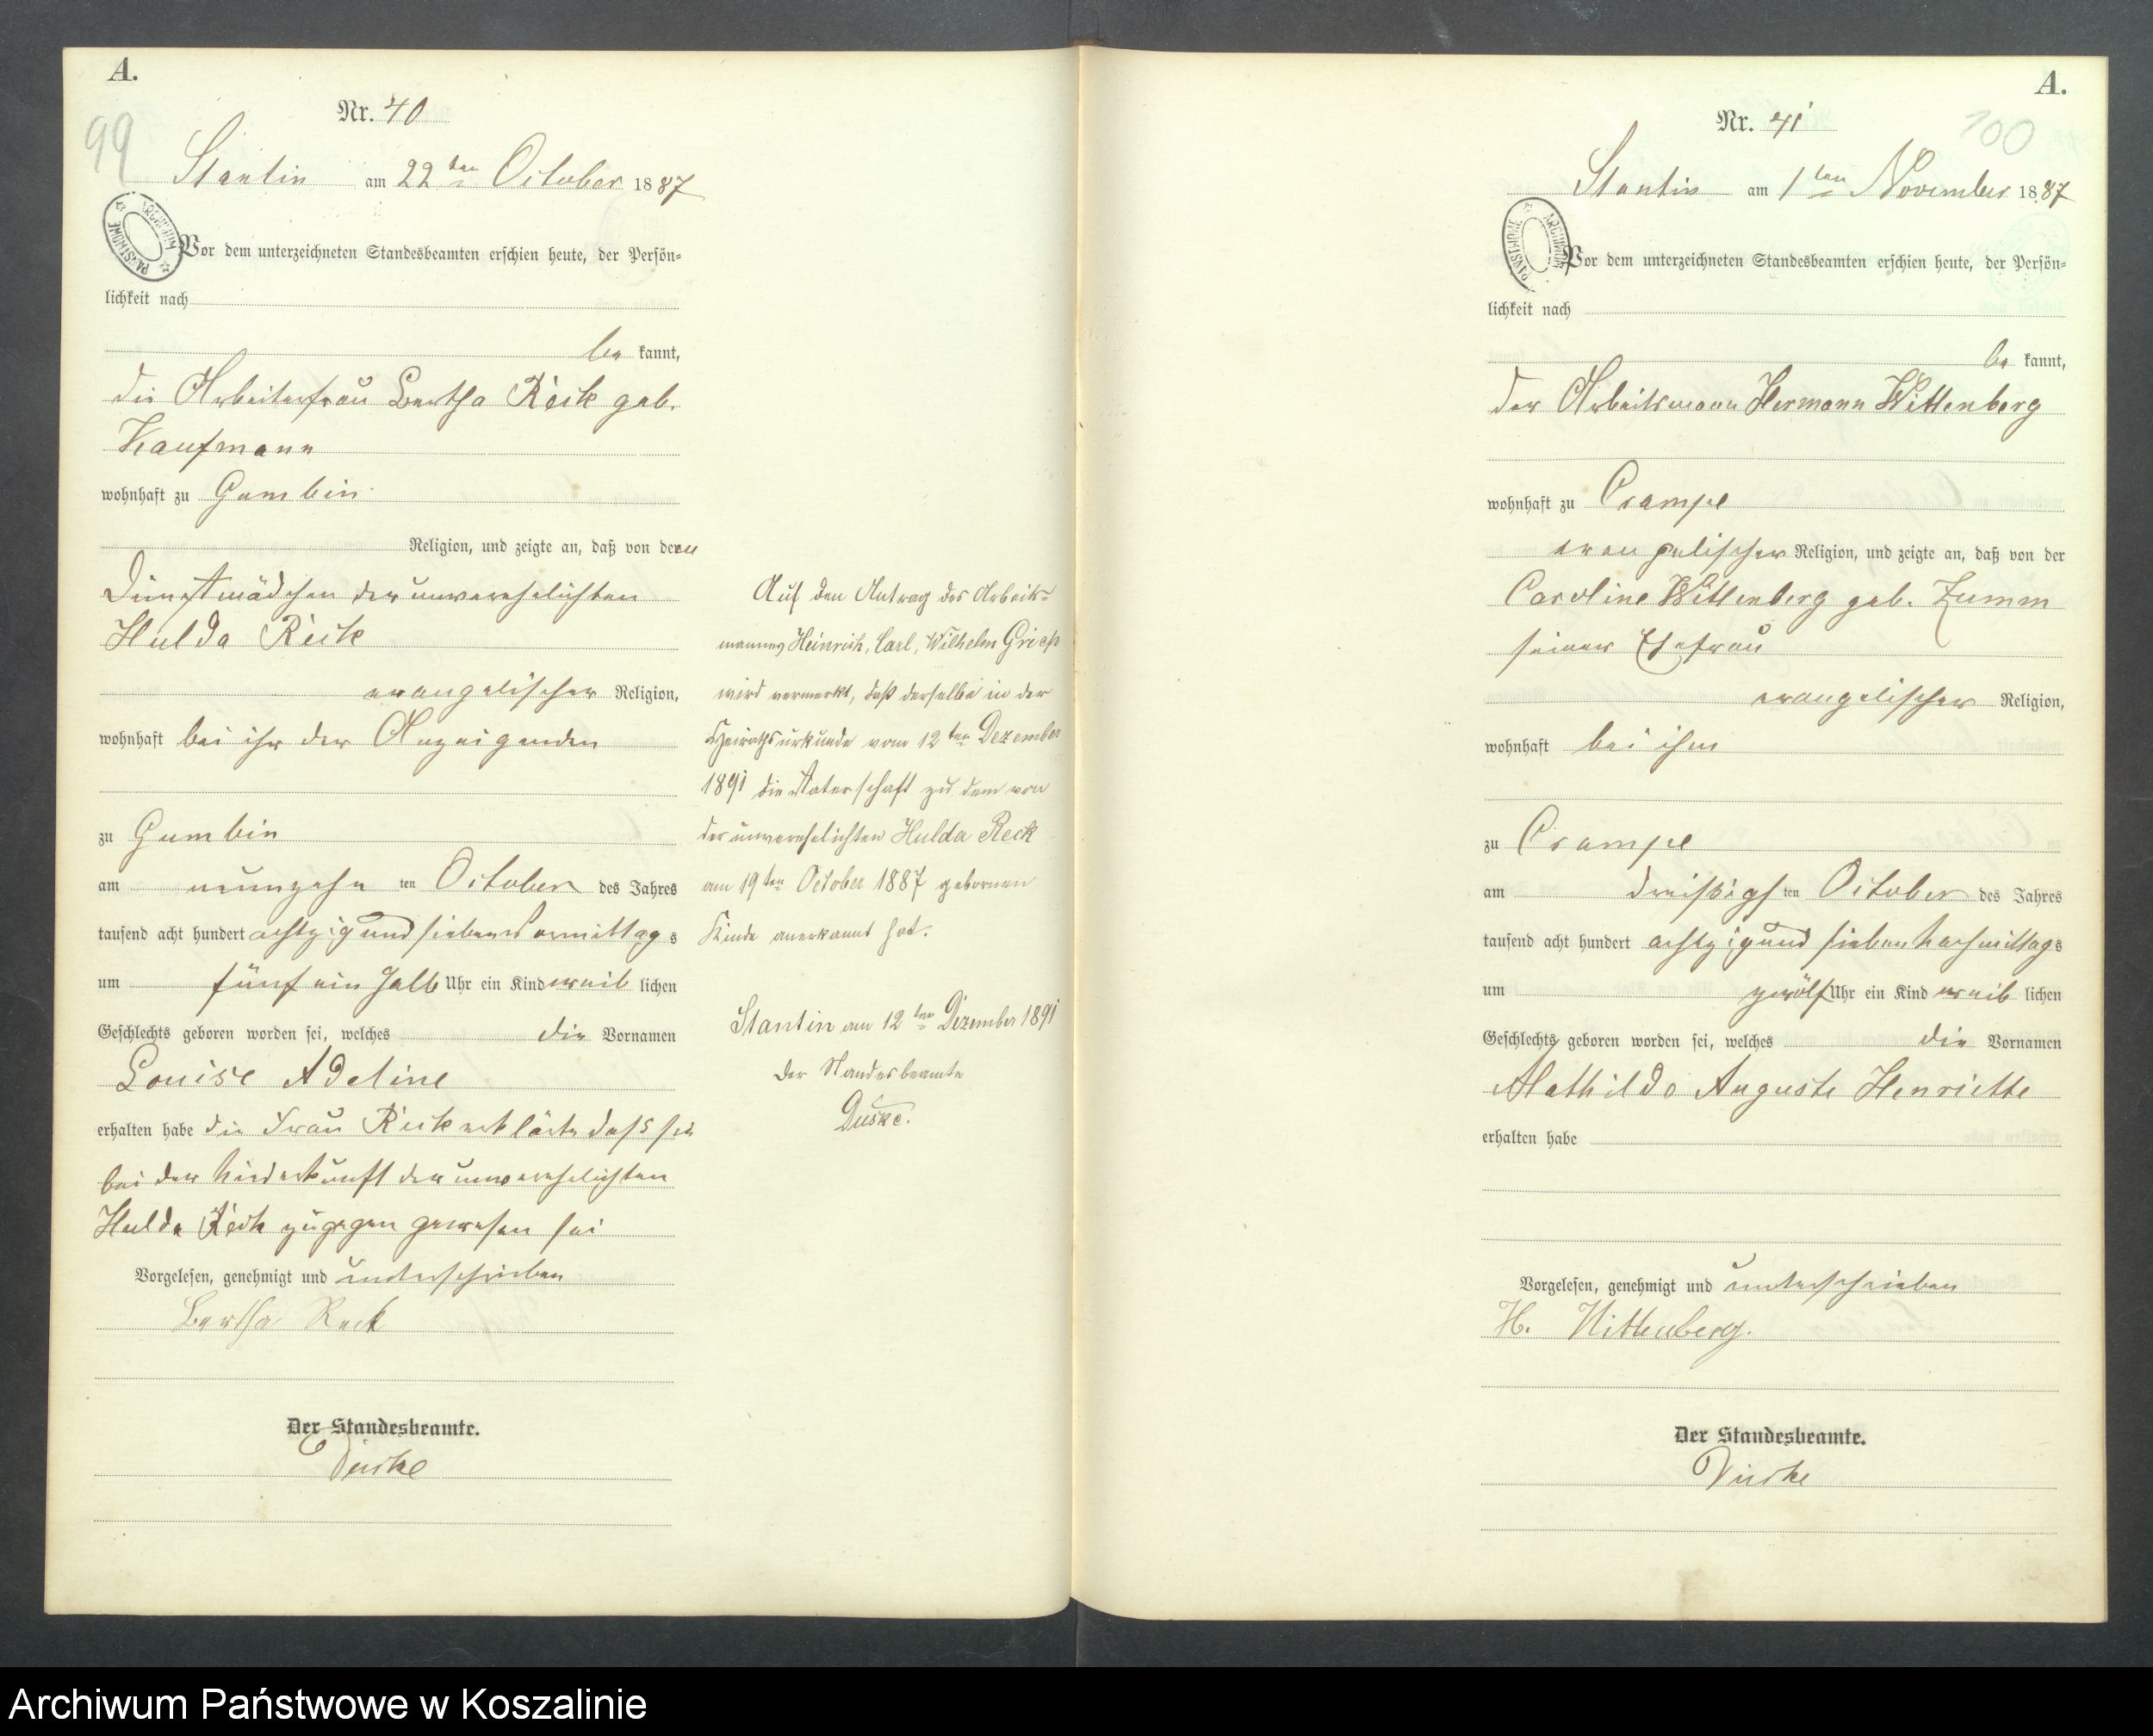 A.
99
Nr. 40
Stantin am 22ten October 1887
Vor dem unterzeichneten Standesbeamten erschien heute, der Persön-
lichkeit nach
be kannt,
die Arbeiterfrau Bertha Reck geb.
Kaufmann
wohnhaft zu Gumbin
Religion, und zeigte an, daß von dem
Dienstmädchen der unverehelichten
Hulda Reck
evangelischer Religion,
wohnhaft bei ihr der Anzeigenden
zu Gumbin
am neunzehn ten October des Jahres
tausend acht hundert achtzig und sieben Vormittags
um fünf ein halb Uhr ein Kind weib lichen
Geschlechts geboren worden sei, welches die Vornamen
Louise Adeline
erhalten habe die Frau Reck erklärte dass sie
bei der Niederkunft der unverehelichten
Hulda Reck zugegen gewesen sei
Vorgelesen, genehmigt und unterschrieben
Bertha Reck
Der Standesbeamte.
Duske
Auf den Antrag des Arbeits-
mannes Heinrich, Carl, Wilhelm
wird vermerkt, daß derselbe in der
Heirathsurkunde vom 12ten Dezember
1891 die Vaterschaft zu dem von
der unverehelichten Hulda Reck
am 19ten October 1887 gebornen
Kinde anerkannt hat.
Stantin am 12ten Dezember 1891
Der Standesbeamte
Duske.
A.
100
Nr. 41
Stantin am 1ten November 1887
Vor dem unterzeichneten Standesbeamten erschien heute, der Persön-
lichkeit nach
be kannt,
der Arbeitsmann Hermann Wittenberg
wohnhaft zu Crampe
evangelischer Religion, und zeigte an, daß von der
Caroline Wittenberg geb. Zumm
seiner Ehefrau
evangelischer Religion,
wohnhaft bei ihm
zu Crampe
am dreißigs ten October des Jahres
tausend acht hundert achtzig und sieben Nachmittags
um zwölf Uhr ein Kind weib lichen
Geschlechts geboren worden sei, welches die Vornamen
Mathilde Auguste Henriette
erhalten habe
Vorgelesen, genehmigt und unterschrieben
H. Wittenberg.
Der Standesbeamte.
Duske
Archiwum Państwowe w Koszalinie